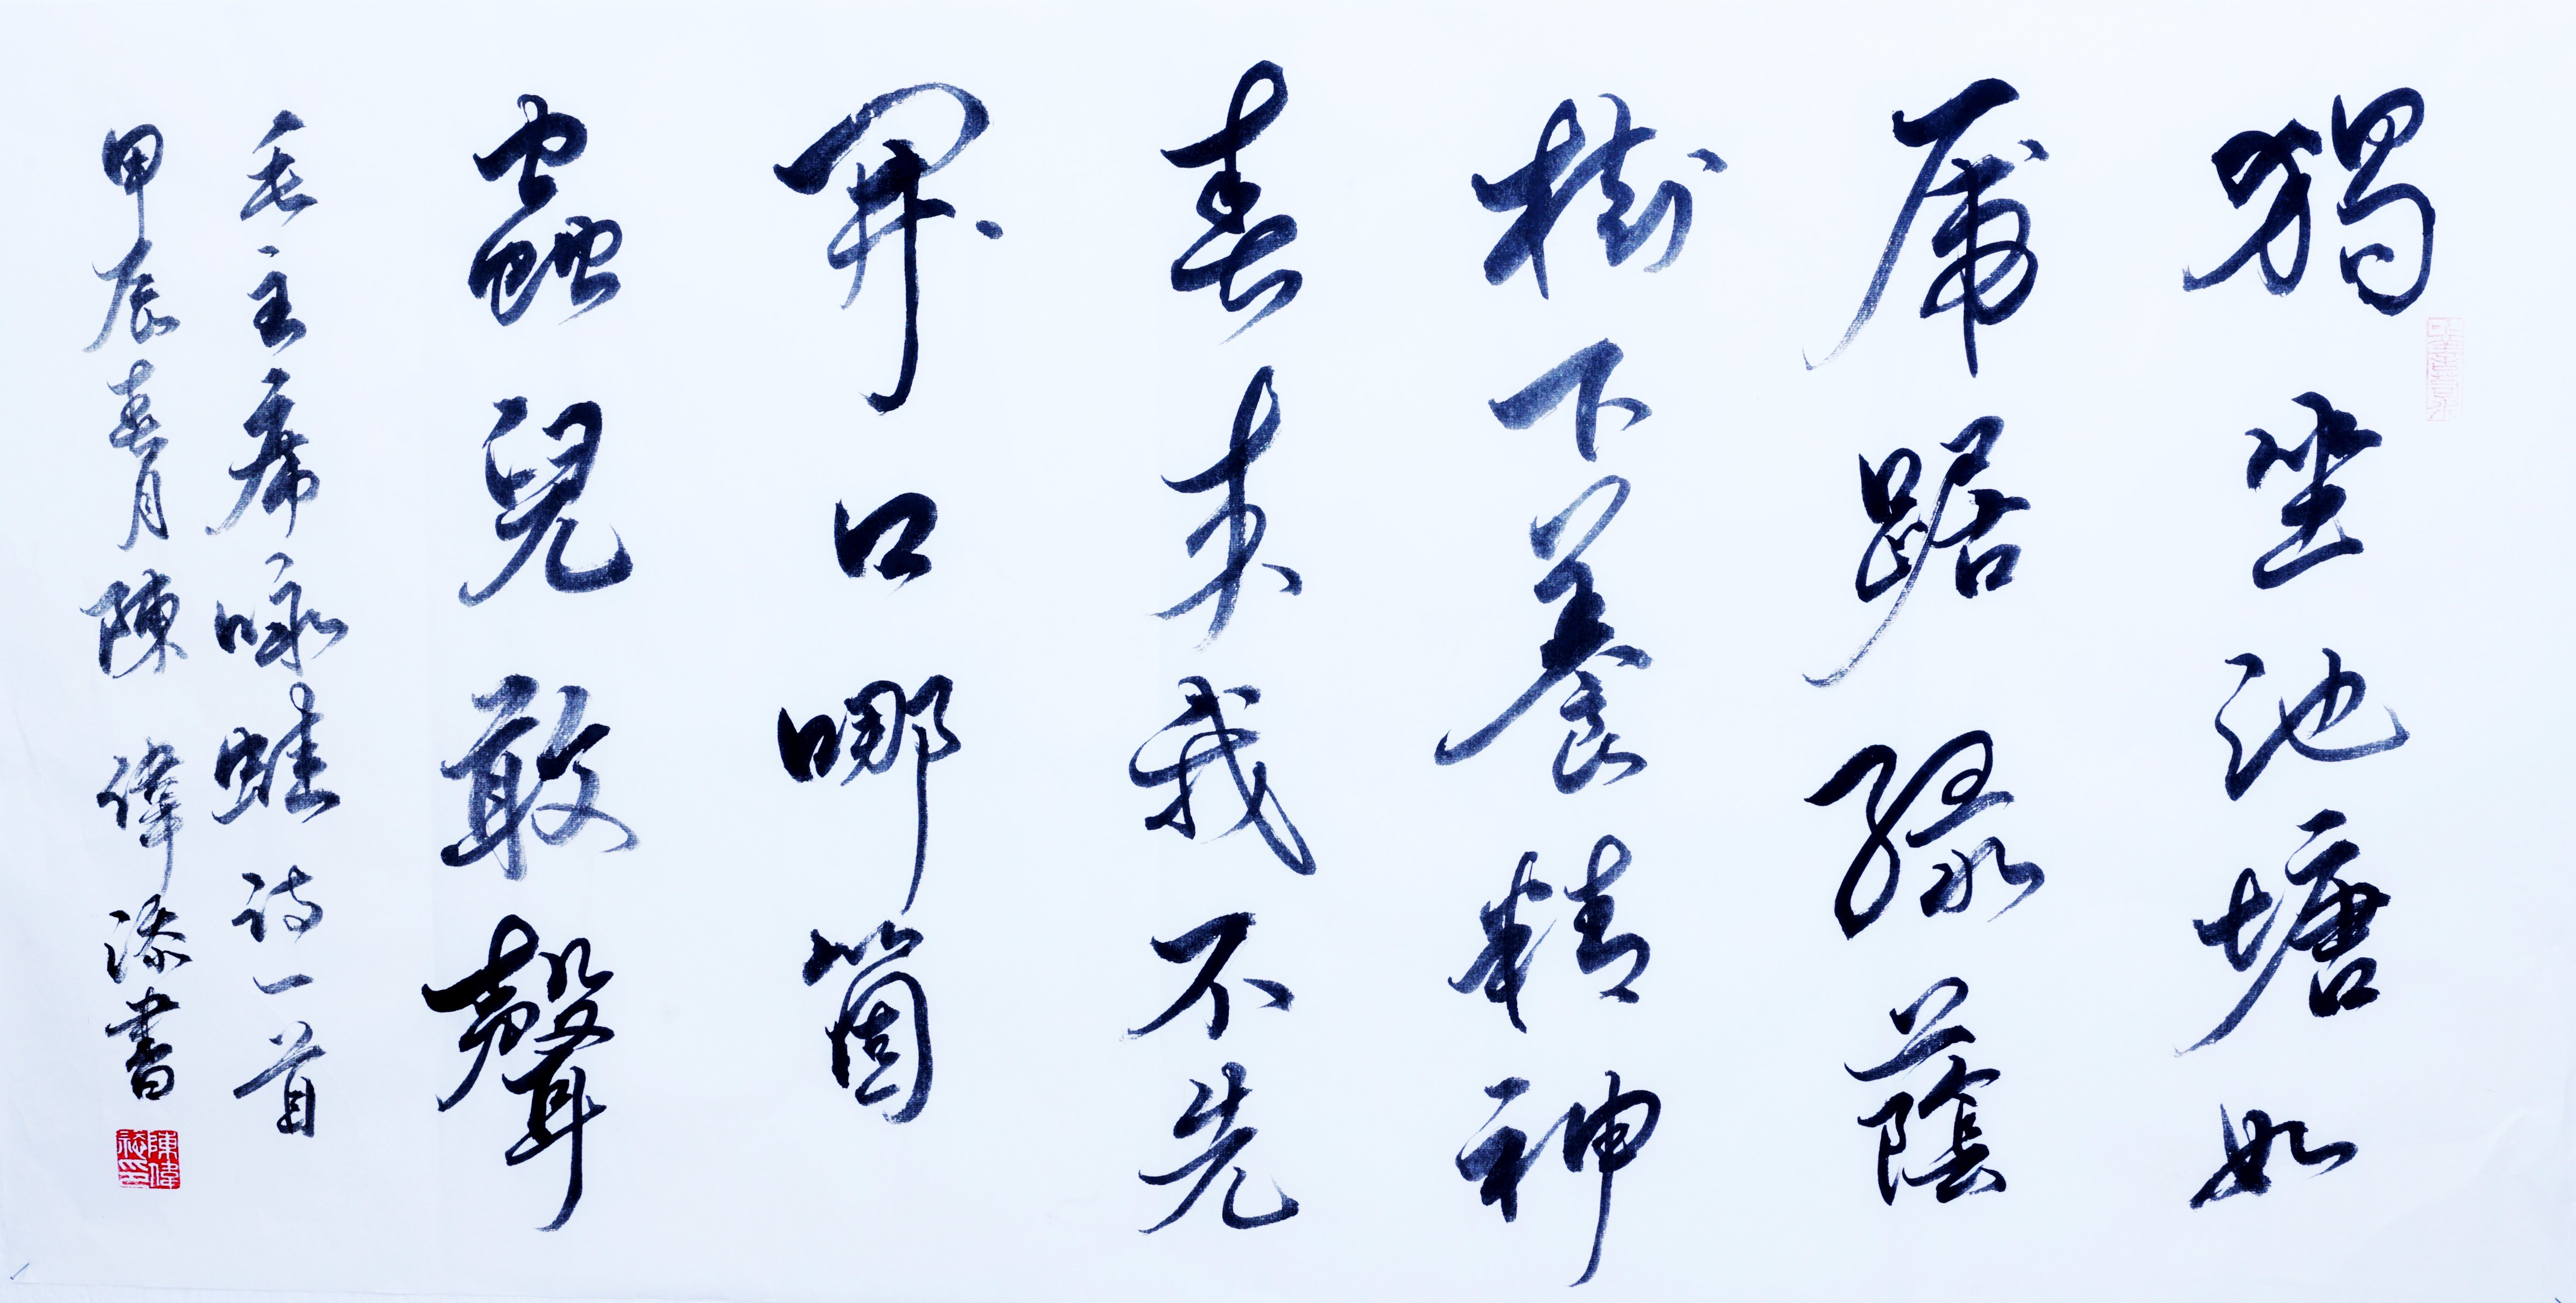 獨坐池塘如
虎踞綠蔭
樹下養精神
春來我不先
開口哪箇
蟲兒敢聲
毛主席咏蛙詩一首
甲辰春月陳偉添書